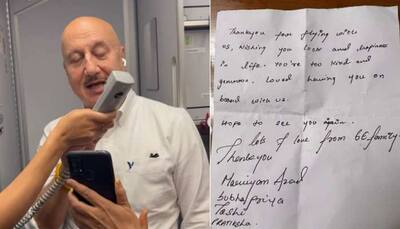 Thankyou for flying with
us, Wishing you love and happiness
in life. You're too kind and
generous. Loved having you on
board with us.
Hope to see you again.
lots of love from 6E family.
Thankyou
Azad
Subhapriya
Tashi